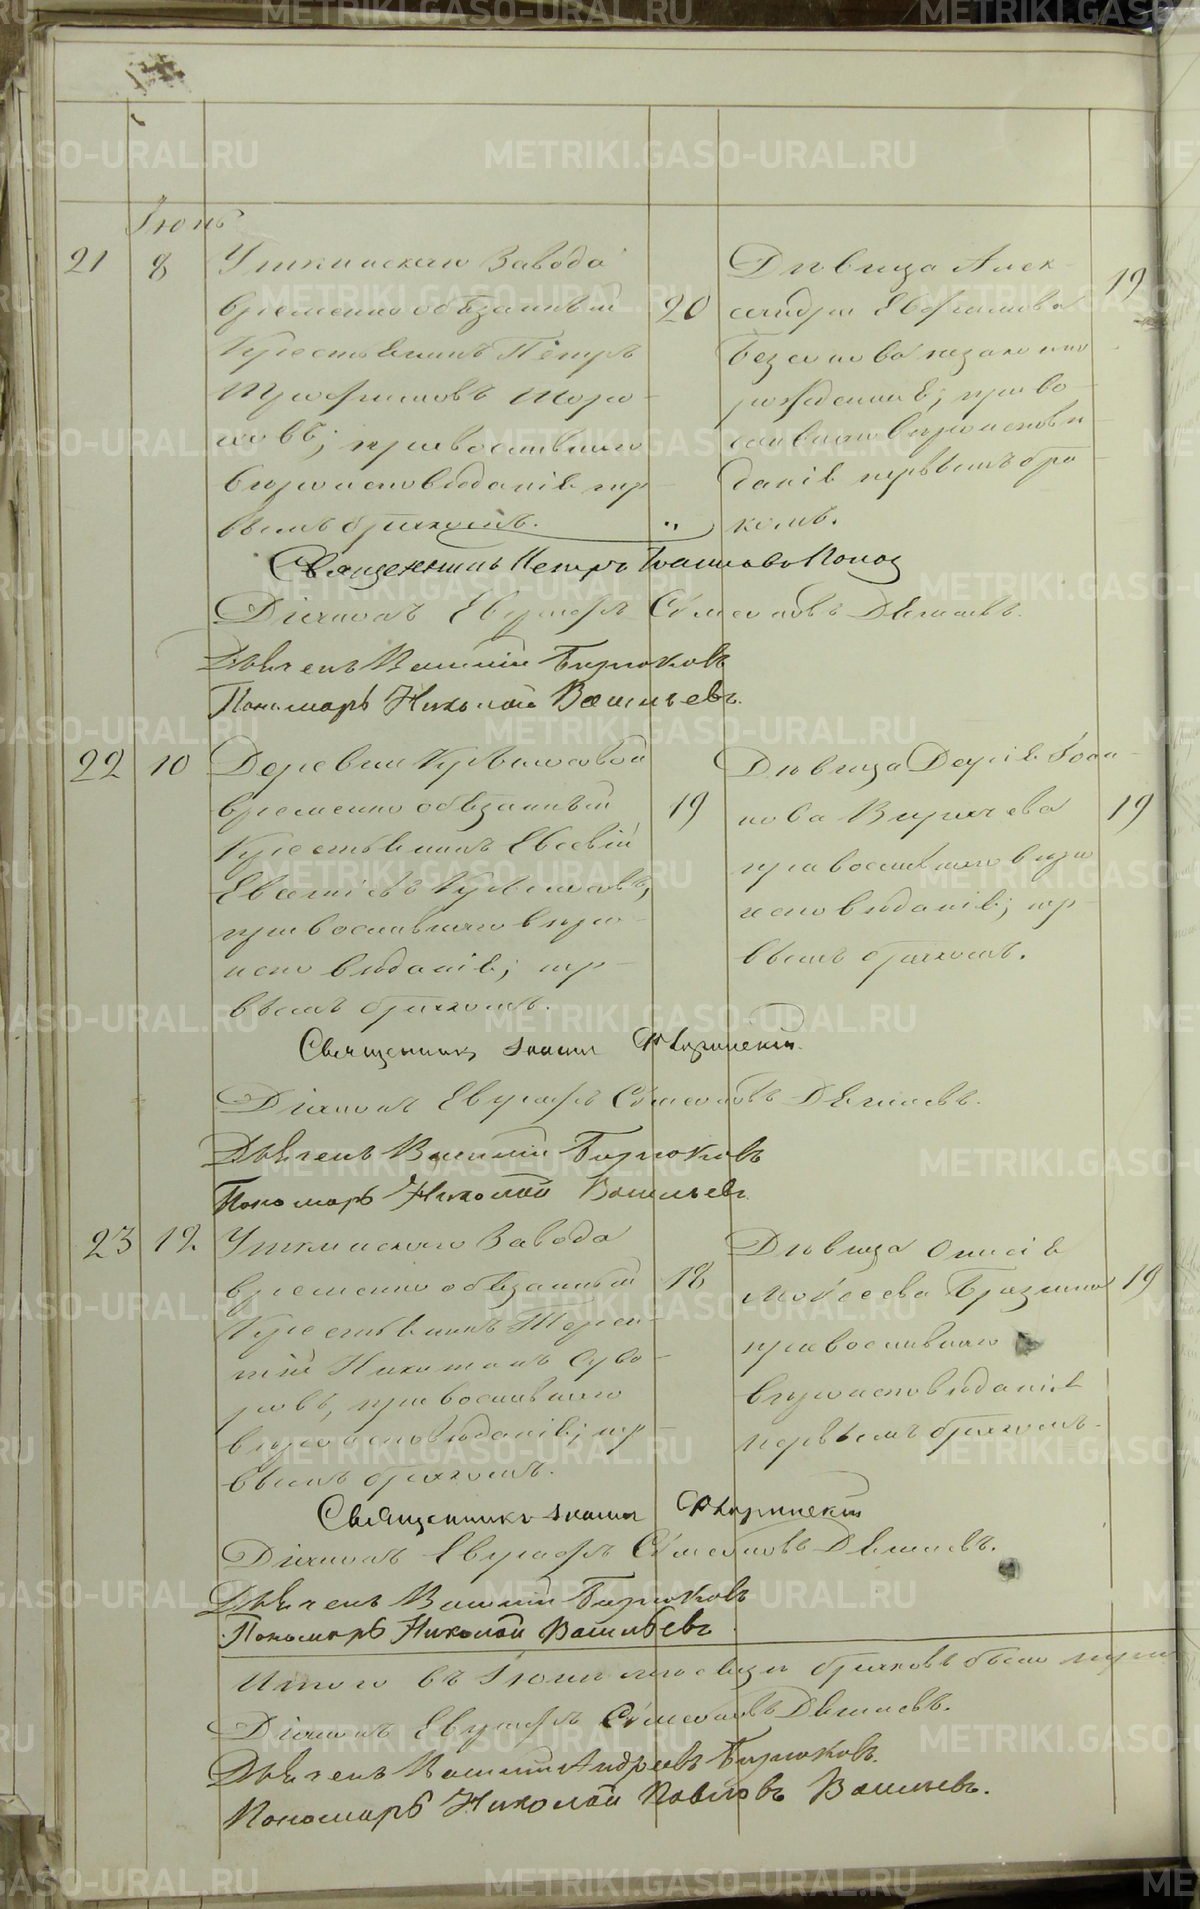 Іюнь
21
8
Уткинскаго Завода
временно обязанный
крестьянинъ Петръ
Трофимовъ
православнаго
вѣроисповѣданія пер-
вымъ бракомъ.
20
Дѣвица Алек-
сандра Евфимова
незаконно
рожденная; право-
славнаго вѣроисповѣ-
данія первымъ бра-
комъ.
19
Священникъ Петръ
Діаконъ Евграфъ Симеоновъ Дягилевъ.
Дьячекъ Василій Бирюковъ
Пономарь Николай Васильевъ.
22
10
Деревни Курьинской
временно обязанный
крестьянинъ Евсевій
православнаго вѣро-
исповѣданія; пер-
вымъ бракомъ.
19
Дѣвица Дарія Іоан-
нова
православнаго вѣро-
исповѣданія; пер-
вымъ бракомъ.
19
Священникъ Іоаннъ Флоринскій.
Діаконъ Евграфъ Симеоновъ Дягилевъ.
Дьячекъ Василій Бирюковъ
Пономарь Николай Васильевъ
23
12.
Уткинскаго Завода
временно обязанный
крестьянинъ Терен-
тій Никитинъ Суво-
ровъ, православнаго
вѣроисповѣданія; пер-
вымъ бракомъ.
18
Дѣвица Анисія
Моисеева Брагина
православнаго
вѣроисповѣданія
первымъ бракомъ.
19
Священникъ Іоаннъ Флоринскій
Діаконъ Евграфъ Симеоновъ Дягилевъ.
Дьячекъ Василій Бирюковъ
Пономарь Николай Васильевъ
Итого въ Іюнѣ мѣсяцѣ браковъ было
Діаконъ Евграфъ Симеоновъ Дягилевъ.
Дьячекъ Василій Андреевъ Бирюковъ.
Пономарь Николай Павловъ Васильевъ.
METRIKI.GASO-URAL.RU